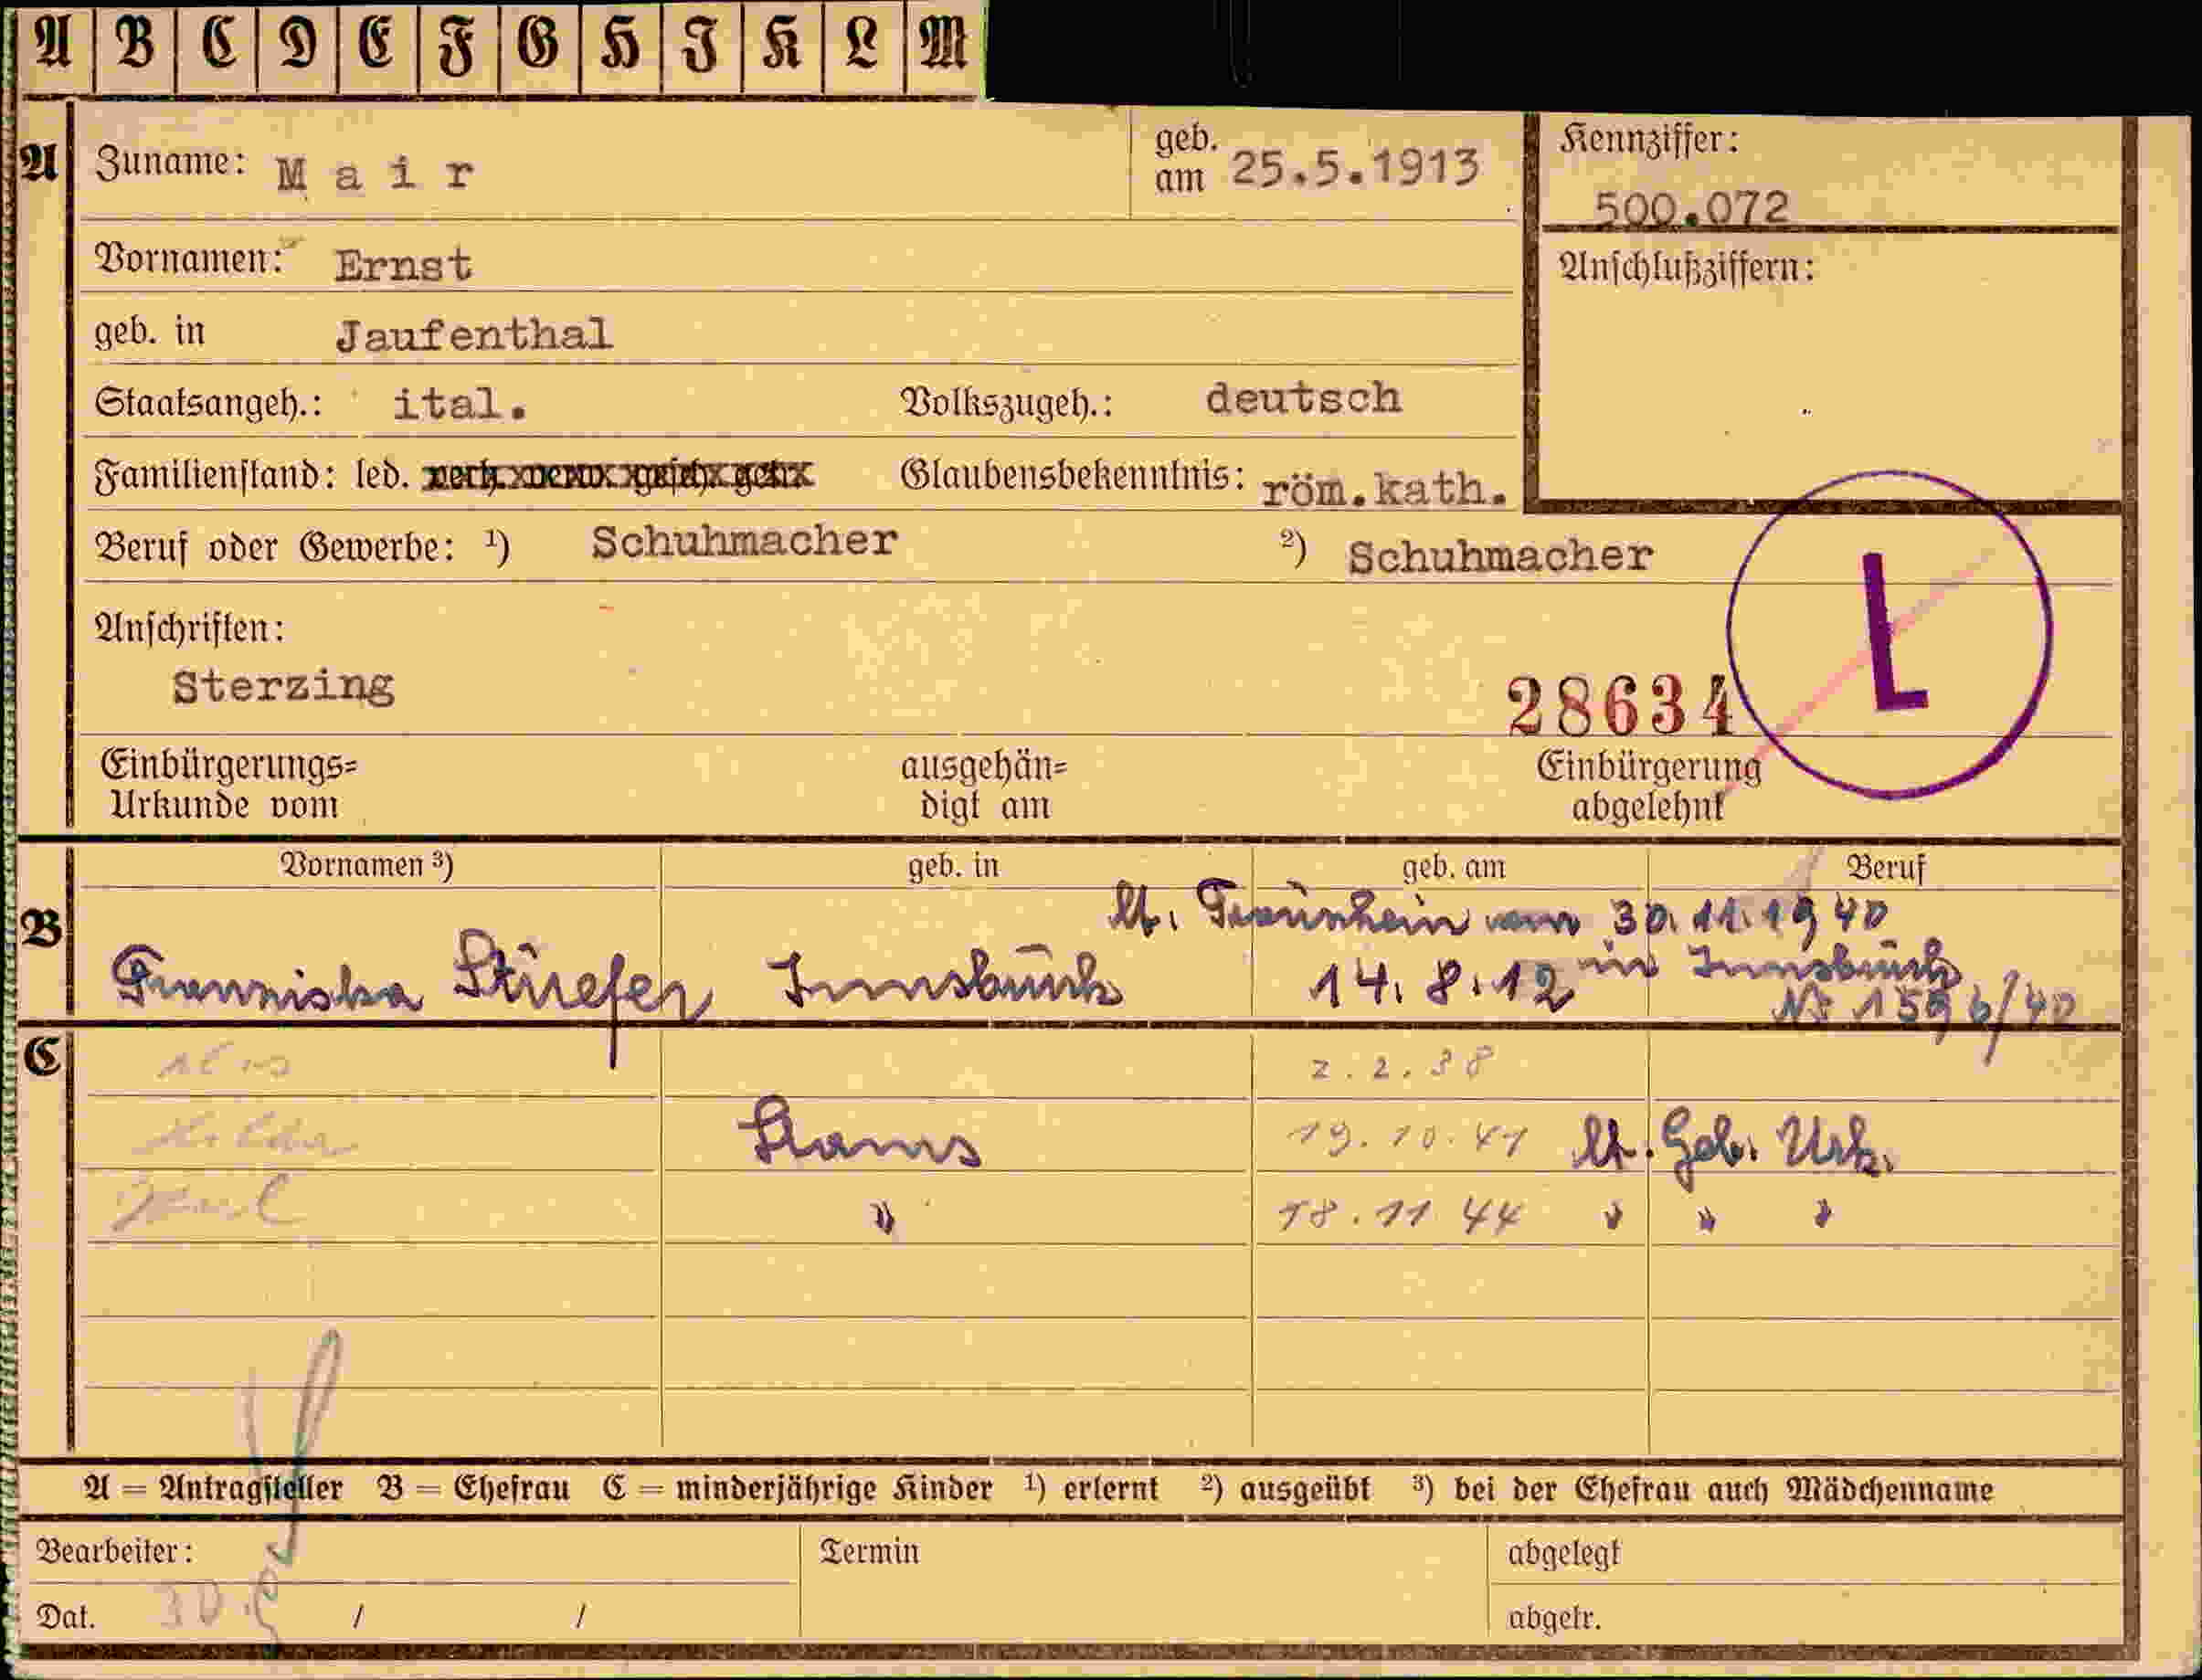 A B C D E F G H J K L M
A Zuname: Mair geb. am 25.5.1913
Kennziffer:
500.072
Vornamen: Ernst
Anschlußziffern:
geb. in Jaufenthal
Staatsangeh.: ital. Volkszugeh.: deutsch
Familienstand: led. Glaubensbekenntnis: röm.kath.
Beruf oder Gewerbe: ¹) Schuhmacher ²) Schuhmacher
L
Anschriften:
Sterzing
28634
Einbürgerungs= ausgehän= Einbürgerung
Urkunde vom digt am abgelehnt
Vornamen ³) geb. in geb. am Beruf
B
lt. Trauschein vom 30.11.1940
Franziska Innsbruck 14.8.12 in Innsbruck
Nr 1596/40
C
2.2.38
Stams 19.10.41 lt. Geb. Urk.
" 18.11 44 " " "
A = Antragsteller B = Ehefrau C = minderjährige Kinder ¹) erlernt ²) ausgeübt ³) bei der Ehefrau auch Mädchenname
Bearbeiter: Termin abgelegt
Dat. / / abgetr.